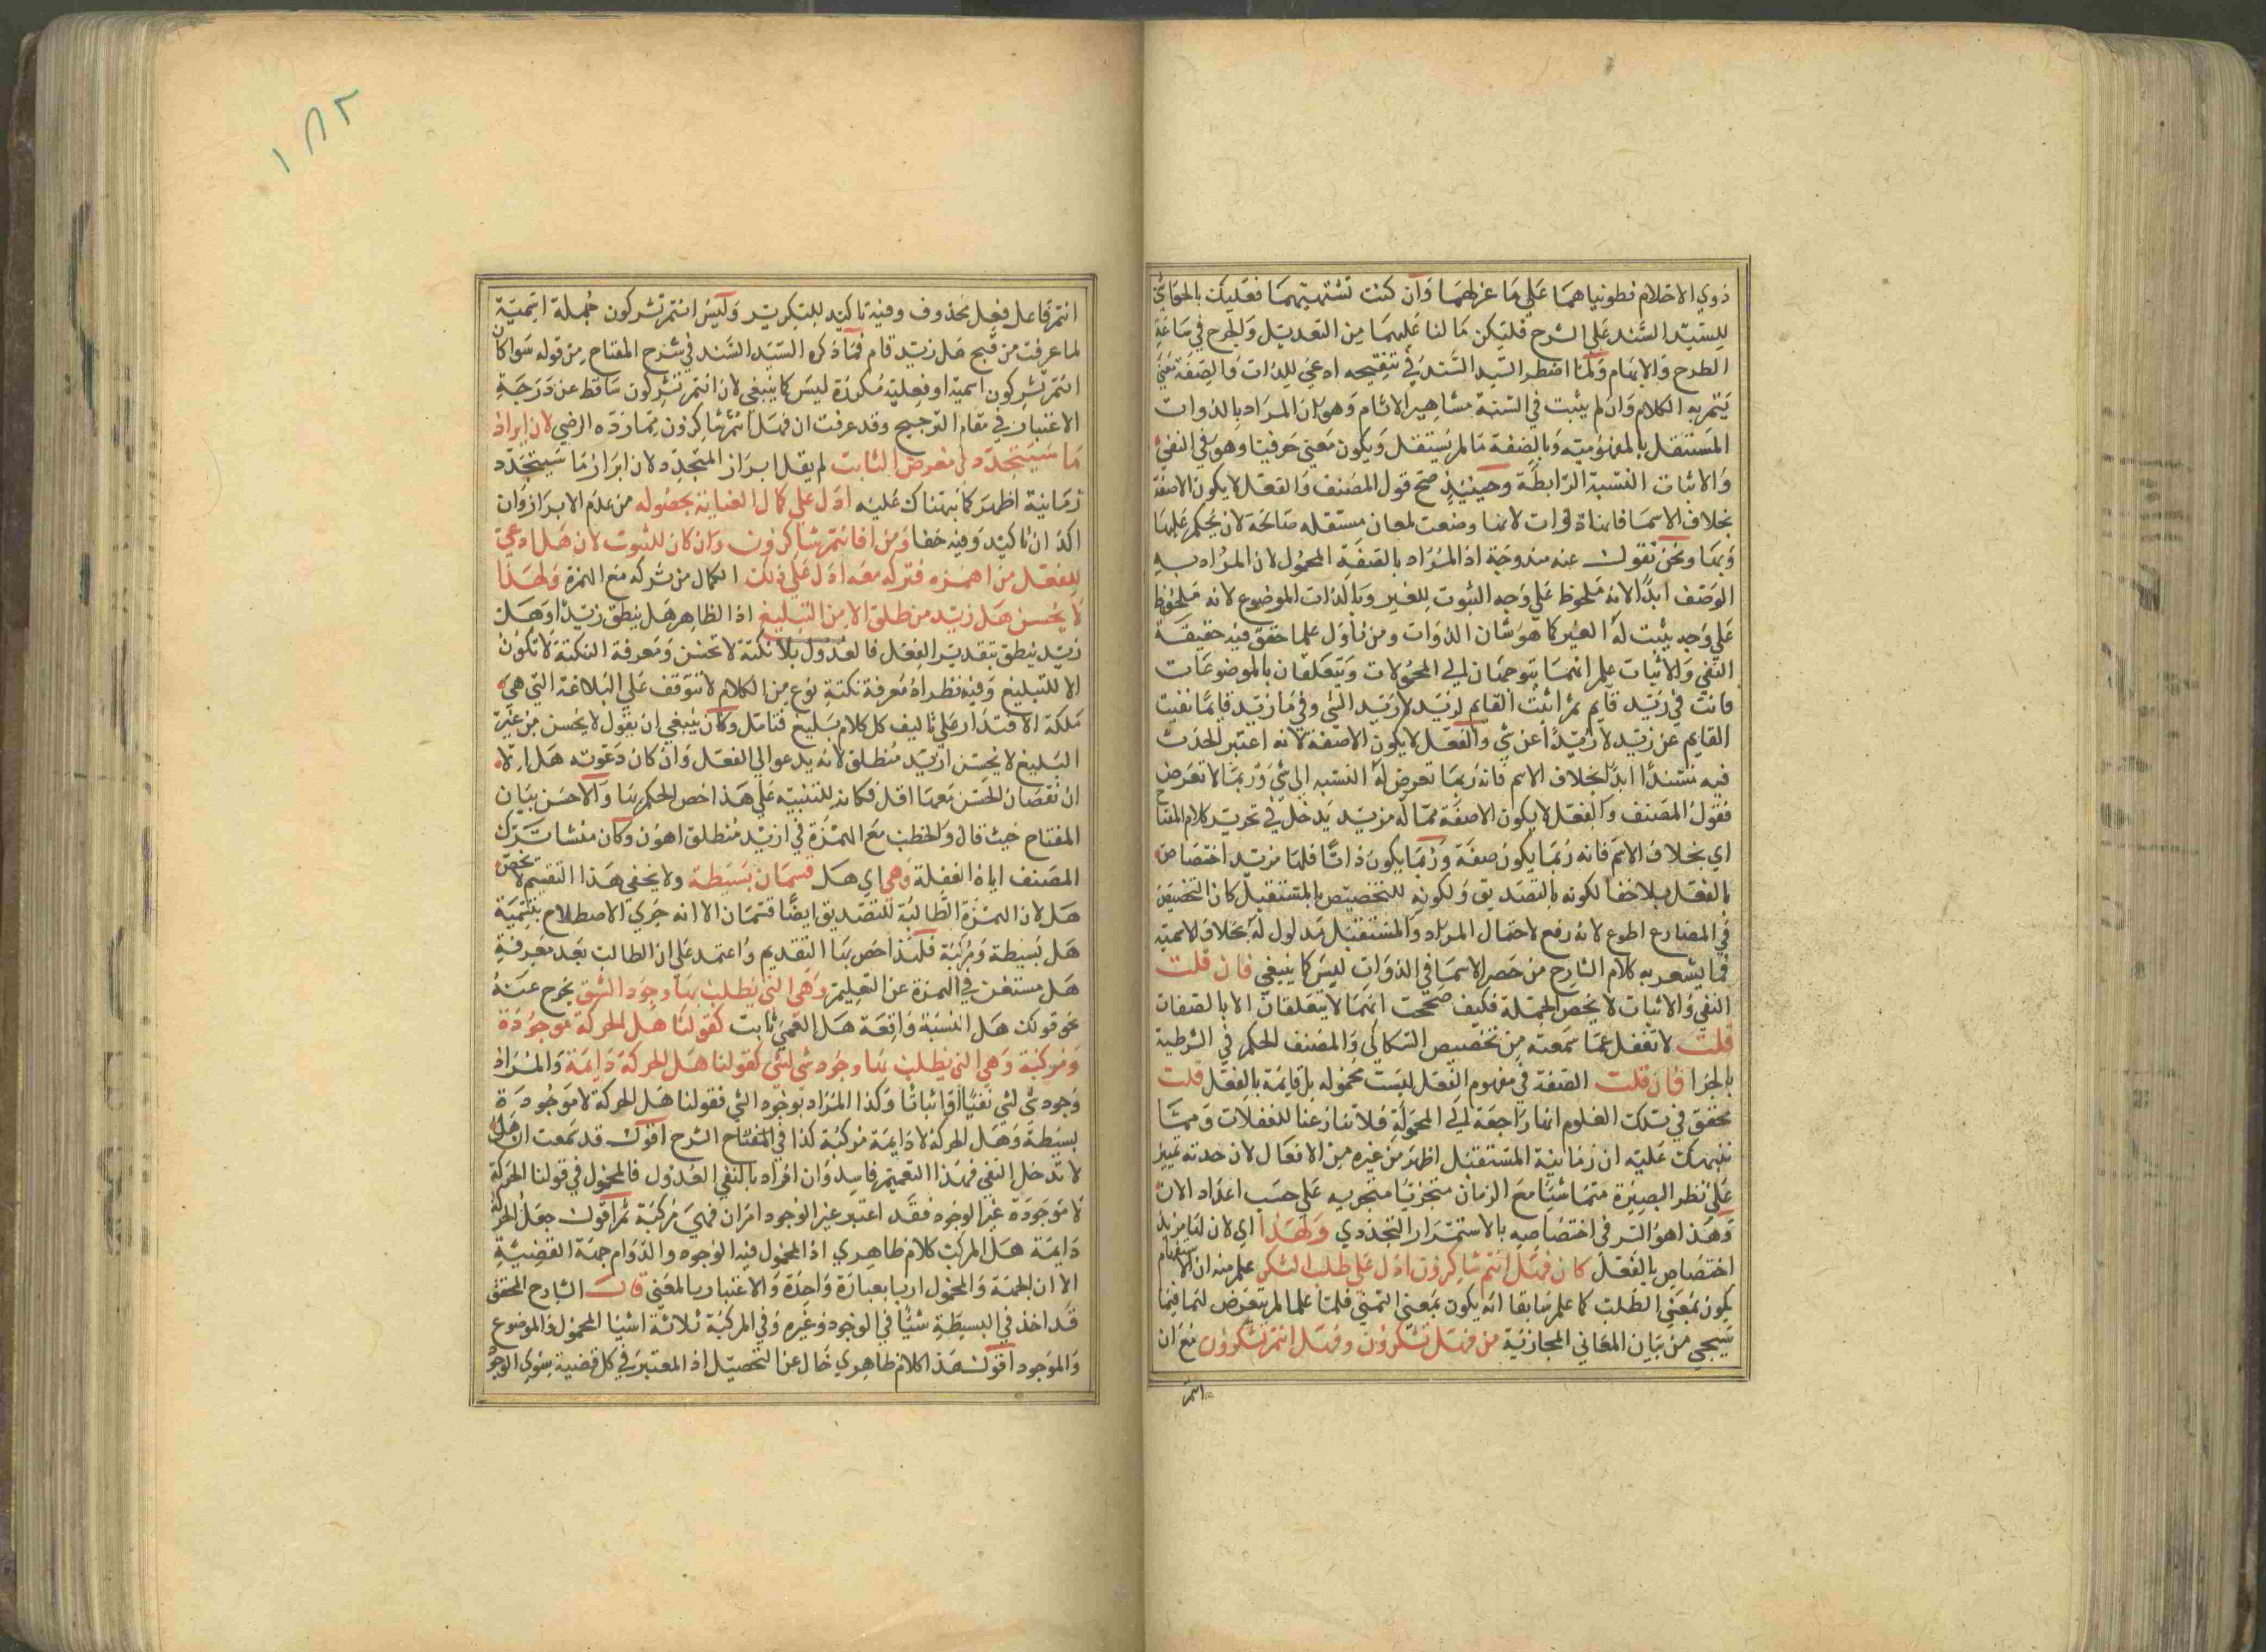 ذوي الاحلام فطوينا هما على ما غرلهما وان كنت تشتهيهما فعليك بالحواشي
للسيد السند على الشرح فليكن ما لنا عليهما من التعديل والجرح في ساعة
الطرح والابهام ولما اضطر السيد السند في تنقيحه ادعى للذات والصفة معنى
يتم به الكلام وان لم يثبت في السنة مشاهير الانام وهو ان المراد بالذوات
المستقل بالمفهومية وبالصفة ما لم يستقل ويكون معنى حرفيا وهو في النفي
والاثبات النسبة الرابطة وحينئذ صح قول المصنف والفعل لا يكون الا صفة
بخلاف الاسما فانها ذوات لانها وضعت لمعان مستقلة صالحة لان يحكم عليها
وبها ونحن نقول عنه مندوحة اذ المراد بالصفة المحمول لان المراد به
الوصف ابدا لانه ملحوظ على وجه الثبوت للغير وبالذات الموضوع لانه ملحوظ
على وجه يثبت له الغير كما هو شان الذوات ومن تأول علما حقق فيه حقيقة
النفي والاثبات علم انهما يتوجهان الى المحمولات ويتعلقان بالموضوعات
فانت في زيد قايم تم اثبت القايم لزيد لا زيد الشي وفي ما زيد قايما نفيت
القايم عن زيد لا زيدا عن شي والفعل لا يكون الا صفة لانه اعتبر الحدث
فيه مستندا ابدا بخلاف الاسم فانه ربما تعرض له النسبه الى شي وربما لا تعرض
فقول المصنف والفعل لا يكون الا صفة مما له مزيد يدخل في تحرير كلام المفتاح
اي بخلاف الاسم فانه ربما يكون صفة وربما يكون ذاتا فلها مزيد اختصاص
بالفعل بلا خفا لكونه بالتصديق ولكونه للتخصيص بالمستقبل كان التخصيص
في المضارع اطوع لانه رفع لاحتمال المراد والمستقبل مدلول له بخلاف الاسميه
فما يشعر به كلام الشارح من حصر الاسما في الذوات ليس كما ينبغي فان قلت
النفي والاثبات لا يخص الجملة فكيف صححت انهما لا يتعلقان الا بالصفات
قلت لا تغفل عما سمعته من تخصيص السكاكي والمصنف الحكم في الشرطية
بالجزا فان قلت الصفة في مفهوم الفعل ليست محموله بل قايمة بالفعل قلت
تحقق في تلك العلوم انها راجعة الى المحمولة فلا تنازعنا للغفلات ومما
نبهت عليه ان زمانية المستقبل اظهر من غيره من الافعال لان حدثه تميز
على نظر البصيرة متماشيا مع الزمان متجزئا متجريه على حسب اعداد الان
وهذا هو السر في اختصاصه بالاستمرار التجددي ولهذا اي لان لها مزيد
اختصاص بالفعل كان فهل انتم شاكرون ادل على طلب الشكر علم منه ان الاستفهام
يكون بمعنى الطلب كما علم سابقا انه يكون بمعنى التمني فلهذا علما لم يتعرض لهما فيما
سيجي من بيان المعاني المجازية من فهل تشكرون وفهل انتم تشكرون مع ان
انتم
١٨٢
انتم فاعل فعل محذوف وفيه تاكيد للتكرير وليس انتم تشركون جملة اسمية
لما عرفت من قبح هل زيد قام فما ذكره السيد السند في شرح المفتاح من قوله سوا كان
انتم تشركون اسمية او فعلية مكررة ليس كما ينبغي لان انتم تشركون ساقط عن درجة
الاعتبار في مقام الترجيح وقد عرفت ان فهل انتم شاكرون مما رده الرضي لان ابراز
ما سيتجدد في معرض الثابت لم يقل ابراز المتجدد لان ابراز ما سيتجدد
زمانية اظهر كما نبهناك عليه ادل على كمال العناية بحصوله من عدم الابراز وان
اكد ان تاكيد وفيه خفا ومن افانتم شاكرون وان كان للثبوت لان هل ادعى
للفعل من الهمزه فتركه معه ادل على ذلك الكمال من تركه مع الهمزة ولهذا
لا يحسن هل زيد منطلق الا من البليغ اذ الظاهر هل ينطلق زيد او هل
زيد ينطلق بتقدير الفعل فالعدول بلا نكتة لا تحسن ومعرفة النكتة لا تكون
الا للبليغ وفيه نظر اذ معرفة نكتة نوع من الكلام لا تتوقف على البلاغة التي هي
ملكة الاقتدار على تاليف كل كلام بليغ فتامل وكان ينبغي ان يقول لا يحسن من غير
البليغ لا يحسن ازيد منطلق لانه يدعو الى الفعل وان كان دعوته هل الا
ان نقصان الحسن معها اقل فكانه للتنبيه على هذا خص الحكم بها والاحسن بيان
المفتاح حيث قال والخطب مع الهمزة في ازيد منطلق اهون وكان منشا ترك
المصنف اياه الغفلة وهي اي هل قسمان بسيطة ولا يخفى هذا التقسيم لا يخص
هل لان الهمزة الطالبة للتصديق ايضا قسمان الا انه جرى الاصطلاح بتسمية
هل بسيطة ومركبة فلذا خص بها التقديم واعتمد على ان الطالب بعد معرفة
هل مستغن في الهمزة عن التعليم وهي التي يطلب بها وجود الشي يخرج عنه
نحو قولك هل النسبة واقعة هل العمى ثابت كقولنا هل الحركة موجودة
ومركبة وهي التي يطلب بها وجود شي لشي كقولنا هل الحركة دايمة والمراد
وجود شي لشي نفيا او اثباتا وكذا المراد بوجود الشي فقولنا هل الحركة لا موجودة
بسيطة وهل الحركة لا دايمة مركبة كذا في المفتاح الشرح اقول قد سمعت ان هل
لا تدخل النفي فهذا التعميم فاسد وان اراد بالنفي العدول فالمحمول في قولنا الحركة
لا موجودة غير الوجود فقد اعتبر غير الوجود امران فهي مركبة ثم اقول جعل الحركة
دايمة هل المركب كلام ظاهري اذ المحمول فيه الوجود والدوام جهة القضية
الا ان الجهة والمحمول اديا بعبارة واحدة والاعتبار بالمعنى قال الشارح المحقق
قد اخذ في البسيطة شيا في الوجود وغيره وفي المركبة ثلاثة اشيا المحمول والموضوع
والموجود اقول هذا كلام ظاهري خال عن التحصيل اذ المعتبر في كل قضية سوى الوجود